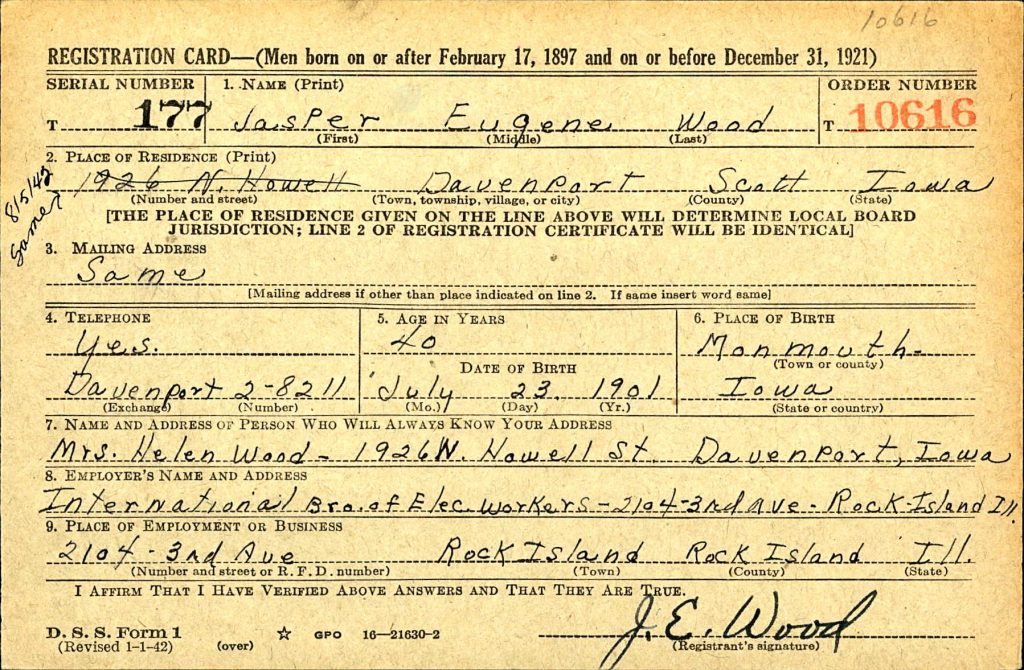 10616
REGISTRATION CARD—(Men born on or after February 17, 1897 and on or before December 31, 1921)
SERIAL NUMBER 1. NAME (Print) ORDER NUMBER
T 177 Jasper Eugene Wood T 10616
(First) (Middle) (Last)
2. PLACE OF RESIDENCE (Print)
1926 N. Howell Davenport Scott Iowa
(Number and street) (Town, township, village, or city) (County) (State)
8/5/42
[THE PLACE OF RESIDENCE GIVEN ON THE LINE ABOVE WILL DETERMINE LOCAL BOARD
JURISDICTION; LINE 2 OF REGISTRATION CERTIFICATE WILL BE IDENTICAL]
3. MAILING ADDRESS
Same
[Mailing address if other than place indicated on line 2. If same insert word same]
4. TELEPHONE 5. AGE IN YEARS 6. PLACE OF BIRTH
Yes. 40 Monmouth-
DATE OF BIRTH (Town or county)
Davenport 2-8211 July 23. 1901 Iowa
(Exchange) (Number) (Mo.) (Day) (Yr.) (State or country)
7. NAME AND ADDRESS OF PERSON WHO WILL ALWAYS KNOW YOUR ADDRESS
Mrs. Helen Wood - 1926 N. Howell St. Davenport, Iowa
8. EMPLOYER'S NAME AND ADDRESS
International Bro. of Elec. Workers - 2104-3rd Ave - Rock Island Ill.
9. PLACE OF EMPLOYMENT OR BUSINESS
2104 - 3rd Ave Rock Island Rock Island Ill.
(Number and street or R. F. D. number) (Town) (County) (State)
I AFFIRM THAT I HAVE VERIFIED ABOVE ANSWERS AND THAT THEY ARE TRUE.
J. E. Wood
D. S. S. Form 1 GPO 16—21630-2
(Revised 1-1-42) (over) (Registrant's signature)